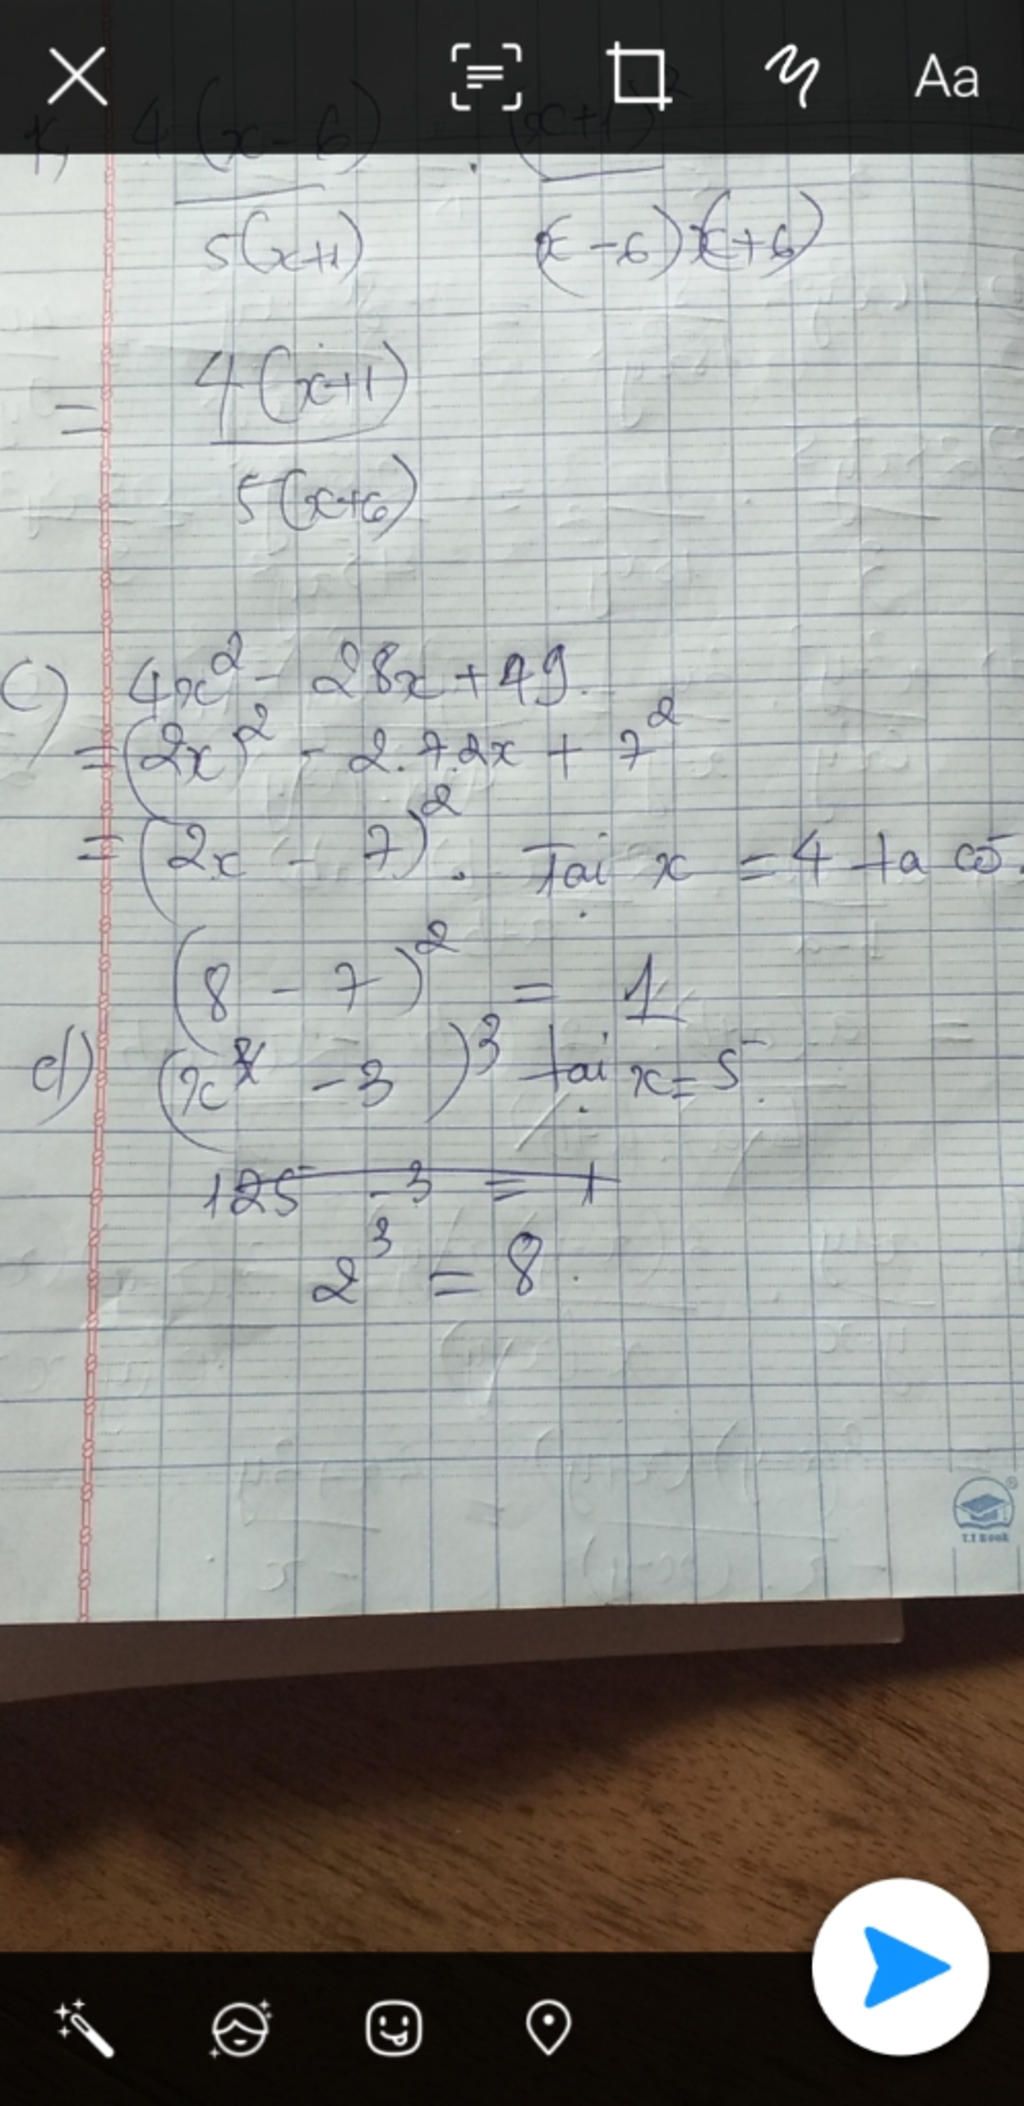 Aa
4(x-6) . (x+1)²
5(x+1) (x-6)(x+6)
= 4(x+1)
5(x+6)
c) 4x² - 28x + 49.
= (2x)² - 2.7.2x + 7²
= (2x - 7)². Tại x = 4 ta có.
(8 - 7)² = 1
d) (x - 3)³ tại x = 5.
125 - 3 = 1
2³ = 8.
T.T Book